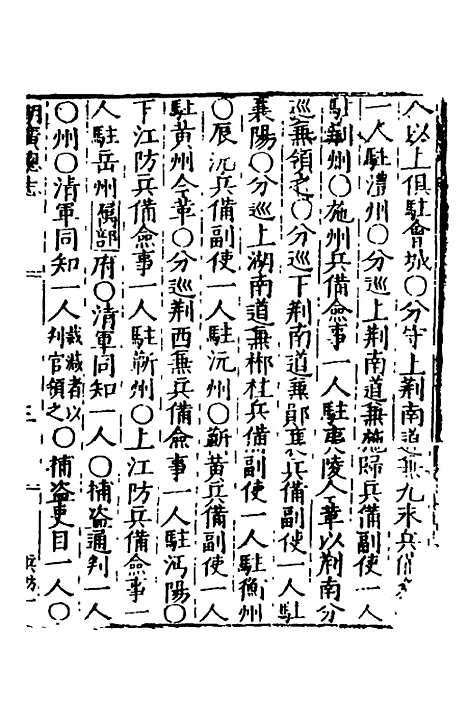 人以上俱駐會城○分守上荆南道兼九永兵備
一人駐澧州○分巡上荆南道兼施歸兵備副使一人
駐荆州○施州兵備僉事一人駐夷陵今革以荆南分
巡兼領之○分巡下荆南道兼鄖襄兵備副使一人駐
襄陽○分巡上湖南道兼郴桂兵備副使一人駐衡州
○辰沅兵備副使一人駐沅州○蘄黄兵備副使一人
駐黄州今革○分巡荆西兼兵備僉事一人駐沔陽○
下江防兵備僉事一人駐蘄州○上江防兵備僉事一
人駐岳州屬部府○清軍同知一人○捕盗通判一人
○州○清軍同知一人裁减者以判官領之○捕盗吏目一人○
湖廣總志 三 兵防一